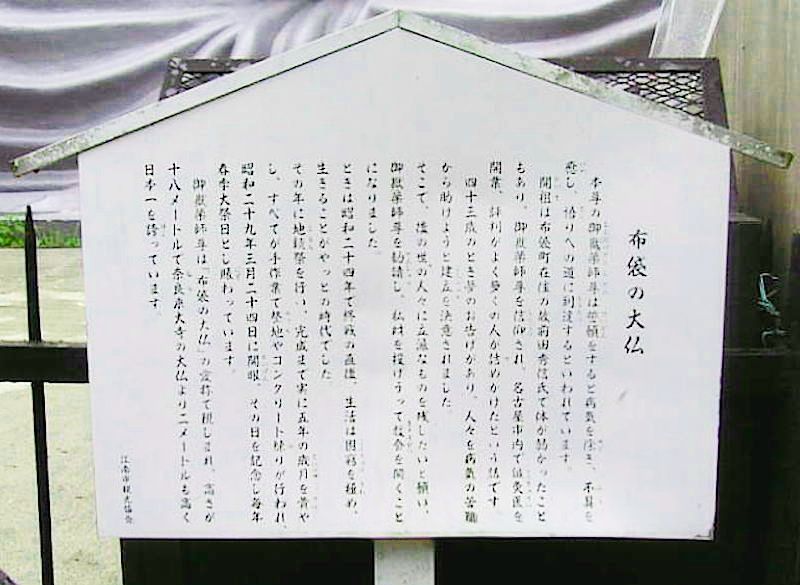 布袋の大仏
本尊の御嶽薬師尊は誓願をすると病気を除き、不具を
癒し、悟りへの道に到達するといわれています。
開祖は布袋町在住の故前田秀信氏で体が弱かったこと
もあり、御嶽薬師尊を信仰され、名古屋市内で鍼灸医を
開業、評判がよく多くの人が詰めかけたという話です
四十三歳のとき夢のお告げがあり、人々を病気の苦職
から助けようと建立を決意されました。
そこで、後の世の人々に立派なものを残したいと願い、
御嶽薬師尊を勧請し、私財を投げうって教会を開くこと
になりました
ときは昭和二十四年で終戦の直後、生活は困窮を極め、
生きることがやっとの時代でした
その年に地鎮祭を行い、完成まで実に五年の歳月を費や
し、すべてが手作業で整地やコンクリート練りが行われ、
昭和二十九年三月二十四日に開眼、その日を記念し毎年
春季大祭日とし賑わっています。
御嶽薬師尊は「布袋の大仏」の愛称で親しまれ、高さが
十八メートルで奈良東大寺の大仏より二メートルも高く
日本一を誇っています。
江南市観光協会